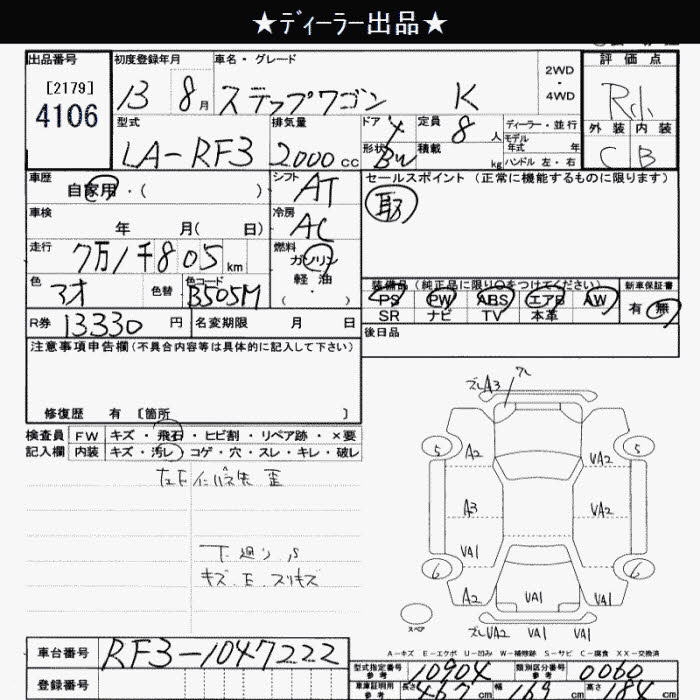 ★ディーラー出品★
出品番号 初度登録年月 車名・グレード 2WD・4WD 評価点
[2179]
4106
13 8月 ステップワゴン K
型式 排気量 ドア 4 定員 8人 ディーラー・並行 外装 内装
LA-RF3 2000cc 形状 BW 積載 kg モデル年式 年 ハンドル 左・右 C B
車歴 自家用・( ) シフト AT セールスポイント (正常に機能するものに限ります)
車検 年 月( 日) 冷房 AC
走行 7万1千805km 燃料 ガソリン 軽油
装備品 (純正品に限り○をつけてください) 新車保証書
色 色替 色コード B505M PS PW ABS エアB AW 有 無
SR ナビ TV 本革
R券 13330円 名変期限 月 日 後日品
注意事項申告欄(不具合内容等は具体的に記入して下さい)
修復歴 有 [箇所 ]
検査員 FW キズ・飛石・ヒビ割・リペア跡・×要
記入欄 内装 キズ・汚レ・コゲ・穴・スレ・キレ・破レ
下廻り S
キズ.E.スリキズ
ズレA3
5 A2 VA2 5
A3 VA2
VA1 VA1
6 A2 VA1 VA1 6
スペア ズレVA2 VA1 VA1
A-キズ E-エクボ U-凹み W-補修跡 S-サビ C-腐食 XX-交換済
車台番号 RF3-1047222
型式指定番号 参考 10904 類別区分番号 参考 0060
登録番号
車庫証明用 参考 長さ 467cm 幅 169cm 高さ 184cm